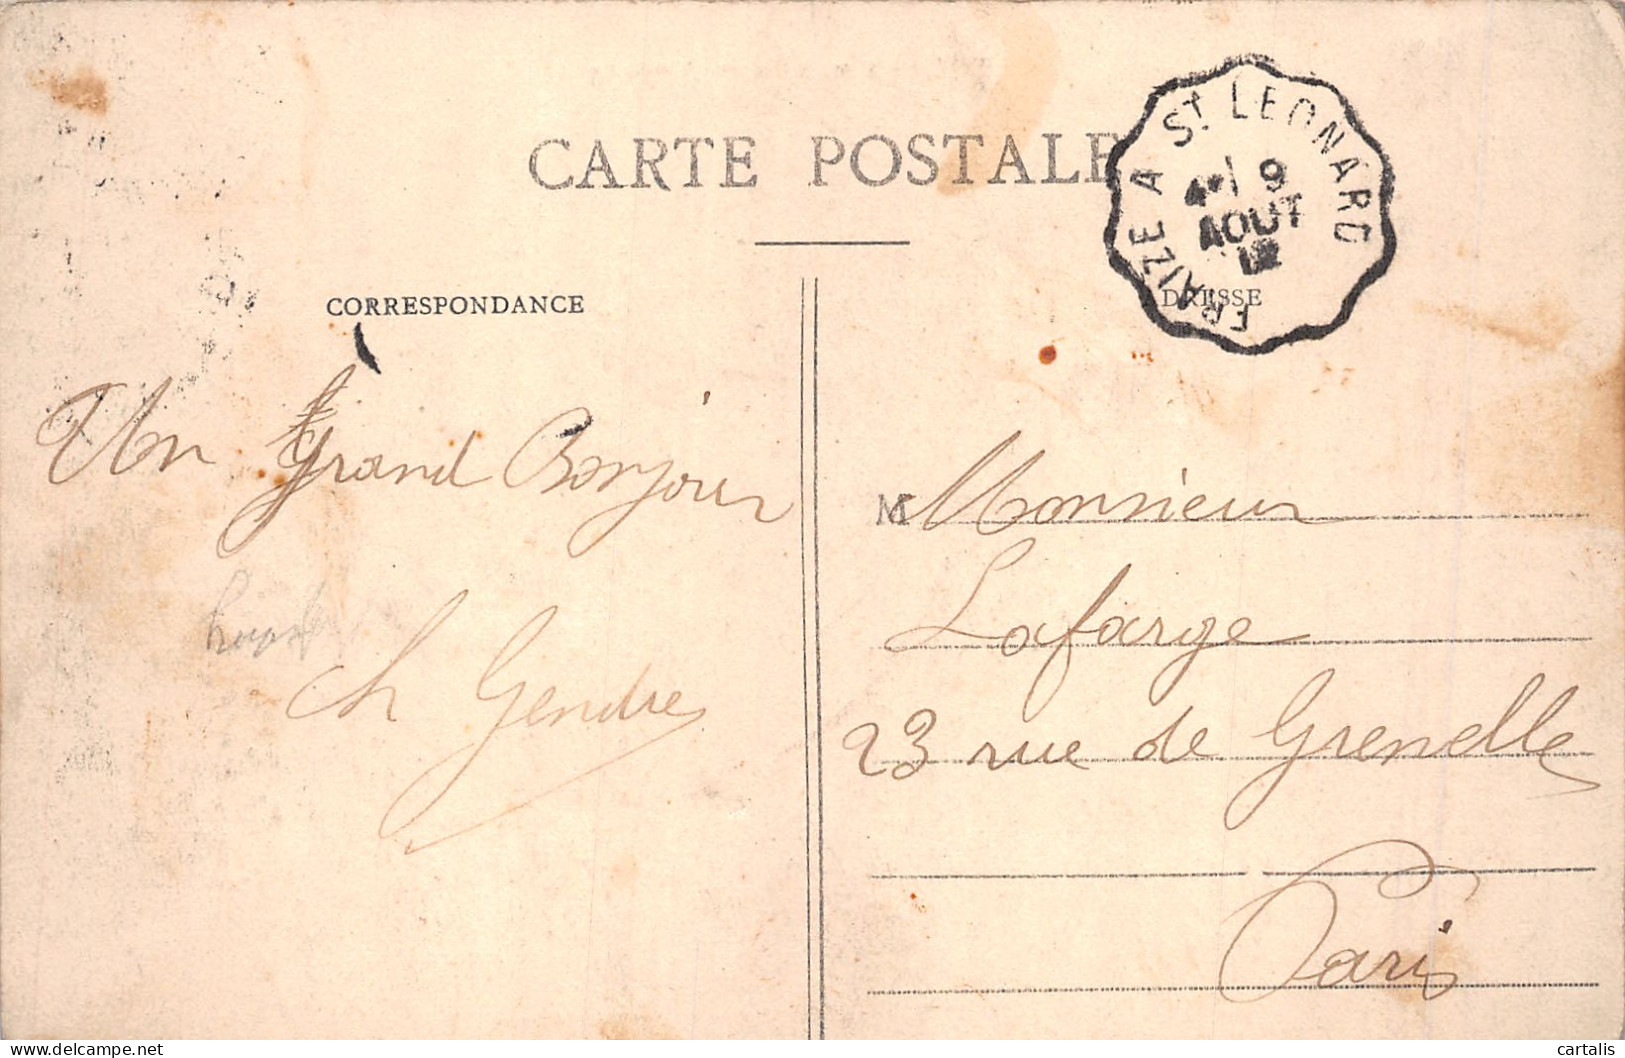 CARTE POSTALE
FRAIZE A St LEONARD
4* 9
AOUT
12
CORRESPONDANCE
ADRESSE
Un Grand Bonjour
Ch Gendre
M Monsieur
Lafarge
23 rue de Grenelle
Paris
cartalis